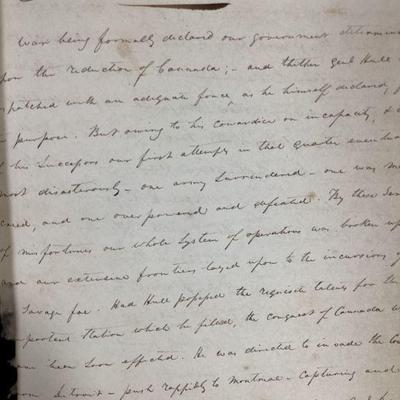 War being formally declared our government determined
upon the reduction of Cannada; - and thither Genl Hull
patched with an adequate force, as he himself declared, f
purpose. But owing to his cowardice or incapacity, &
his Successors our first attempts in that quarter
most disasterously - one army Surrendered - one was
and one overpowered and defeated. By these
of misfortunes our whole System of operations was broken up
and our extensive frontiers layed upon to the incursions of
Savage foe. Had Hull possessed the requisite talents for the
portant Station which he filled, the conquest of Cannada
been Soon effected. He was directed to invade the
Detroit - push rappidly to Montreal - capturing and